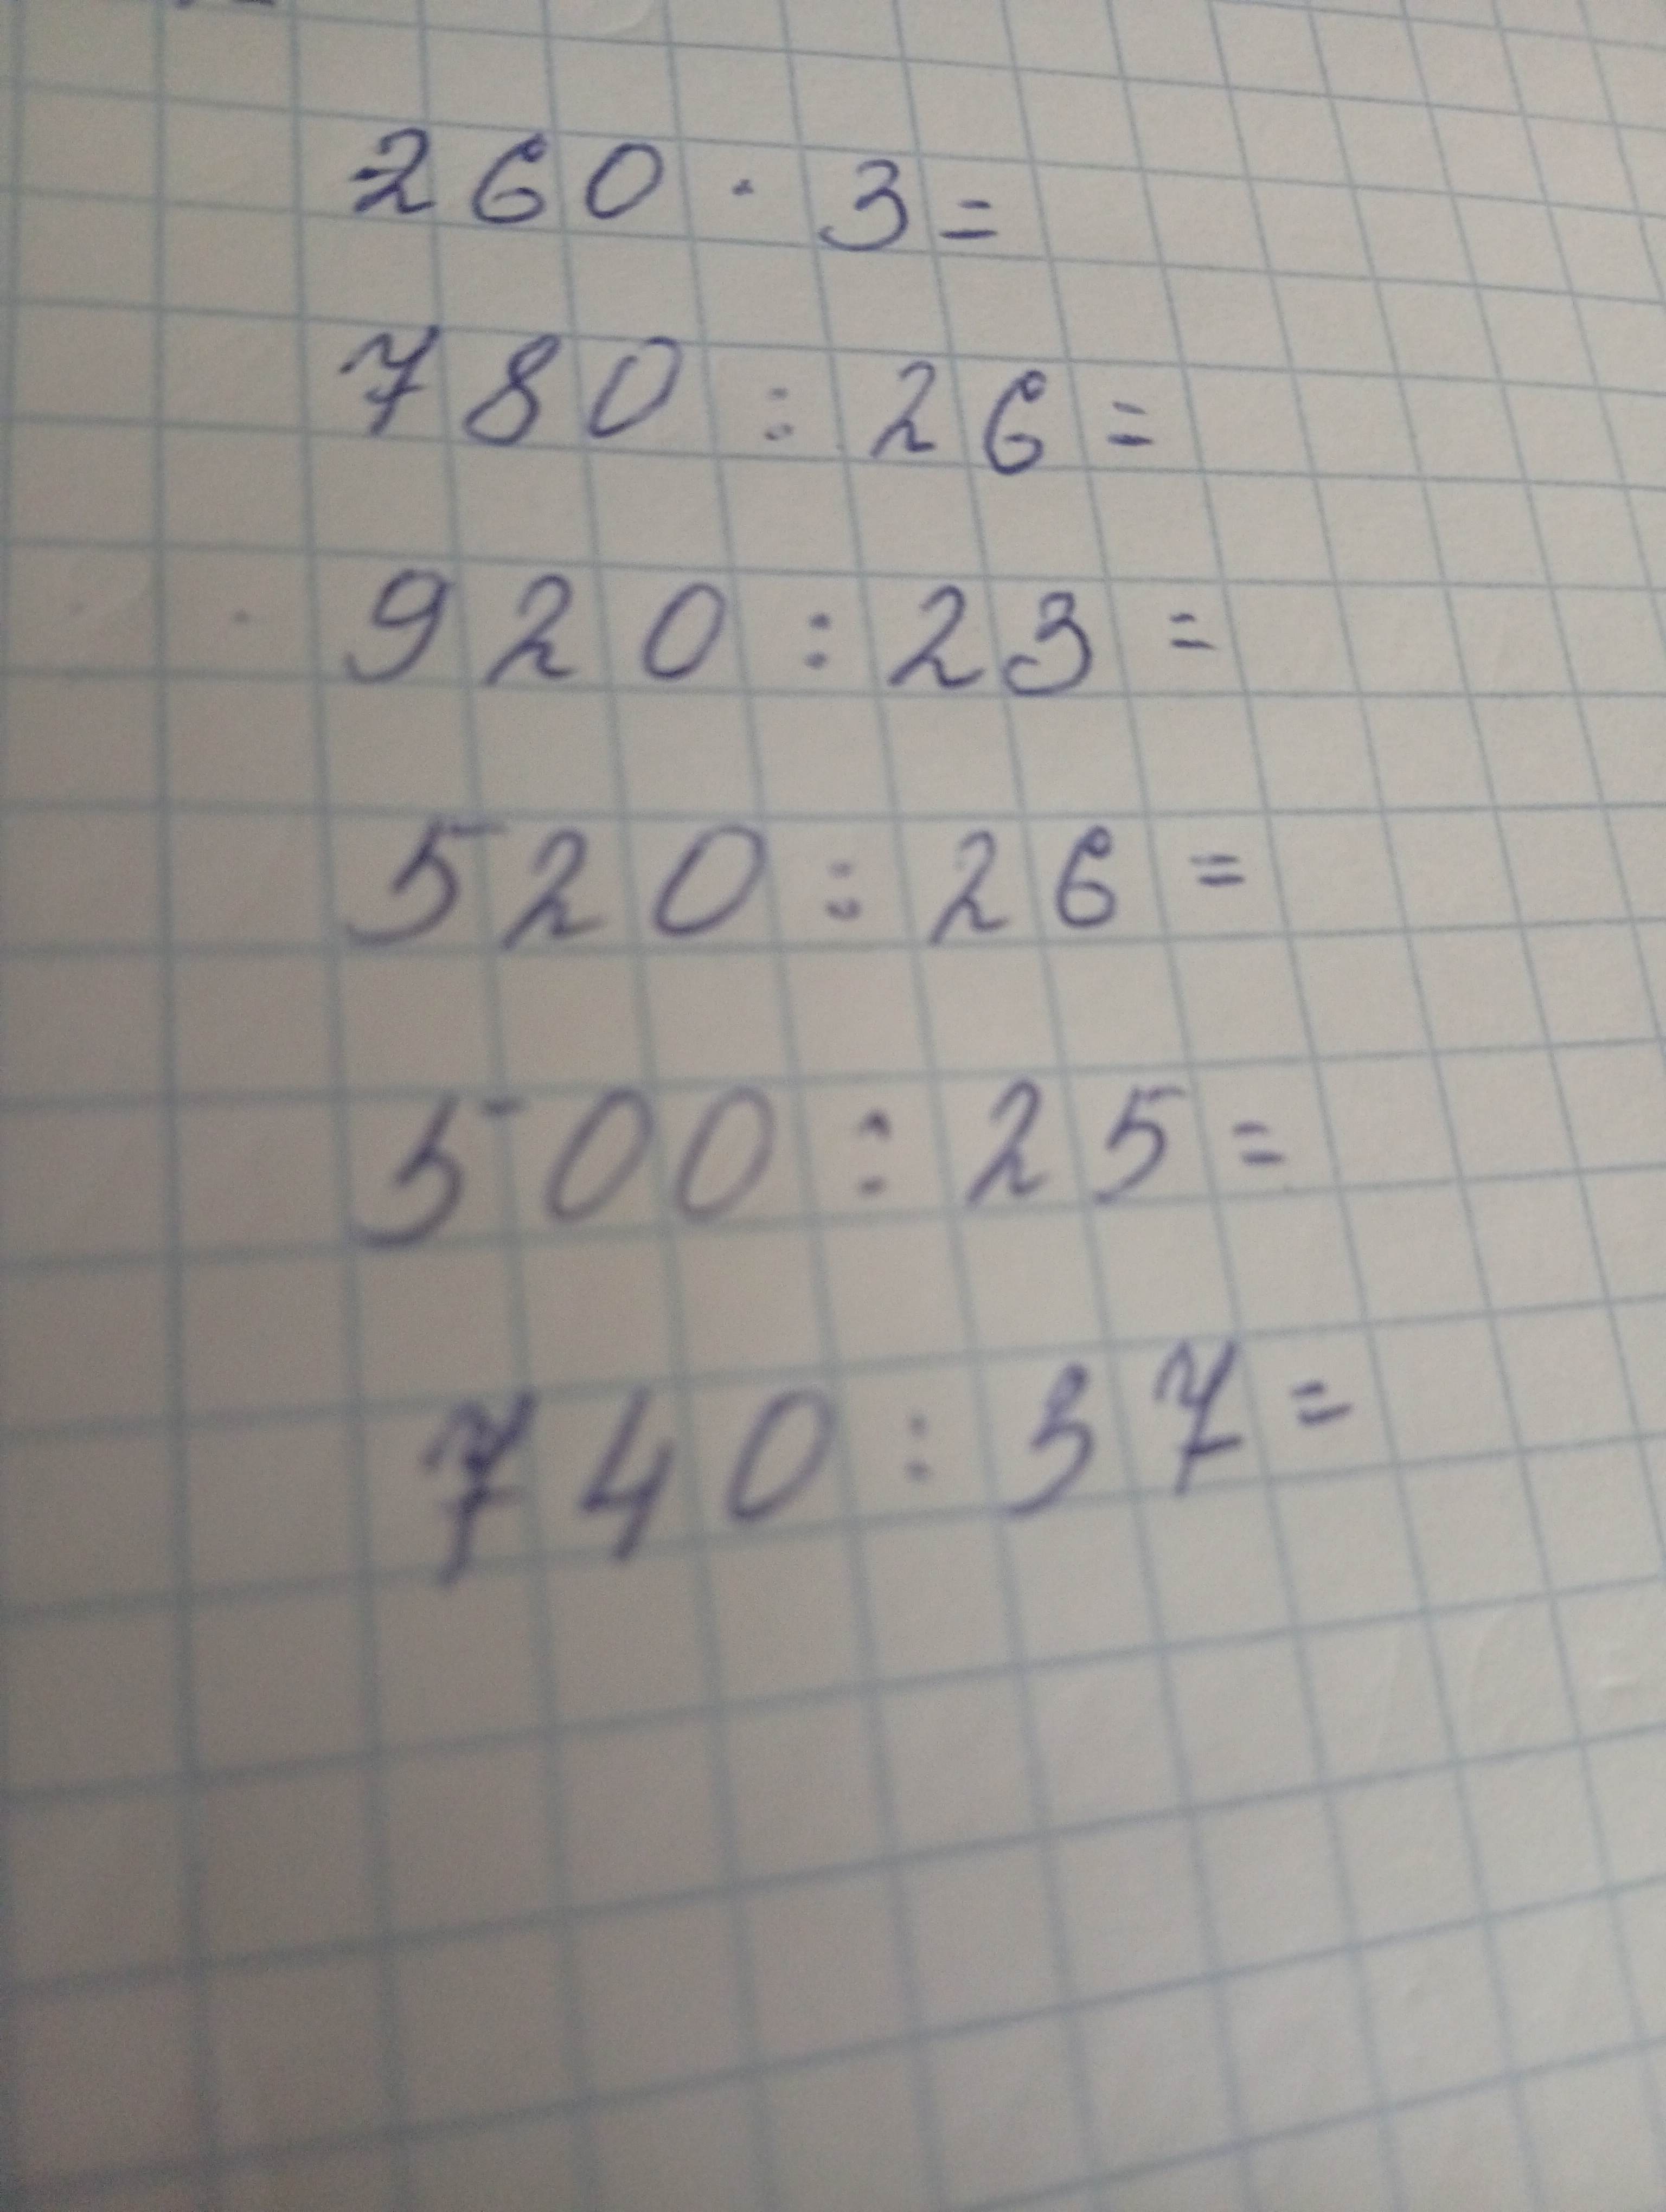 260 · 3 =
780 : 26 =
920 : 23 =
520 : 26 =
500 : 25 =
740 : 37 =